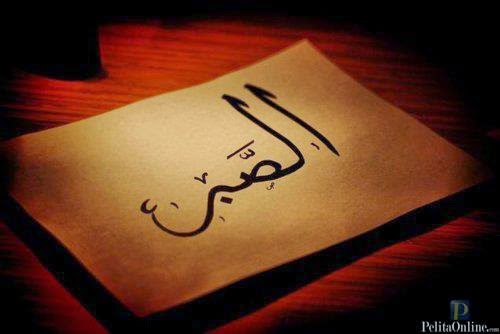 الصّبر
PelitaOnline.com